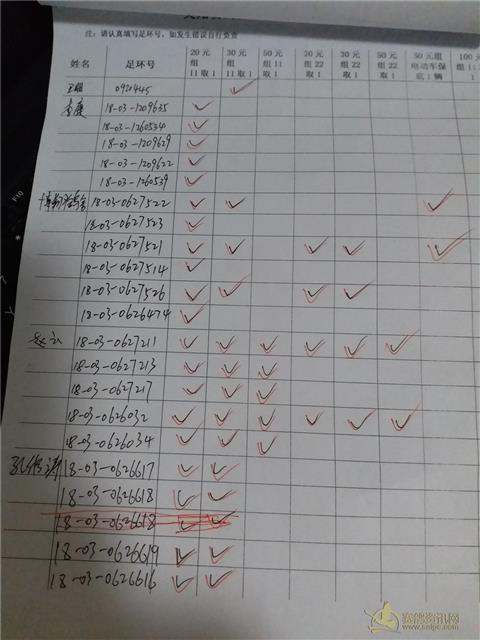 注：请认真填写足环号，如发生错误自行负责
姓名 足环号 20元组11取1 30元组11取1 50元组11取1 20元组22取1 30元组22取1 50元组22取1 50元组电动车保底1 100元
0920445 ✓
李庆 18-03-1209635 ✓
18-03-1260534 ✓
18-03-1209629 ✓
18-03-1209622 ✓
18-03-1260539 ✓
18-03-0627522 ✓ ✓ ✓
18-03-0627523 ✓
18-03-0627521 ✓ ✓ ✓ ✓ ✓
18-03-0627514 ✓
18-03-0627526 ✓ ✓ ✓ ✓
18-03-0626474 ✓
赵云 18-03-0627211 ✓ ✓ ✓ ✓ ✓ ✓
18-03-0627213 ✓ ✓ ✓
18-03-0627217 ✓ ✓ ✓
18-03-0626032 ✓ ✓ ✓ ✓ ✓ ✓
18-03-0626034 ✓ ✓ ✓
孔维涛 18-03-0626617 ✓ ✓
18-03-0626618 ✓ ✓
18-03-0626618 ✓ ✓
18-03-0626619 ✓ ✓
18-03-0626616 ✓ ✓
赛鸽资讯网
www.saige.com